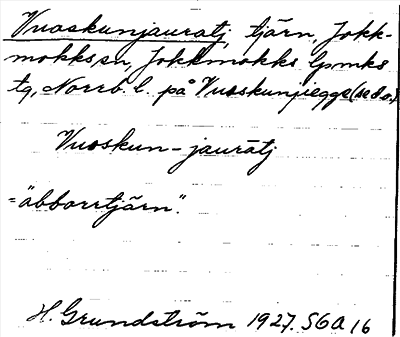 Vuoskunjauratj, tjärn, Jokk-
mokks sn, Jokkmokks lpmks
tg, Norrb. l. på Vuoskunjegge (se d.o.)
Vuoskun-jauratj
="abborrtjärn".
H. Grundström 1927. SGA 16